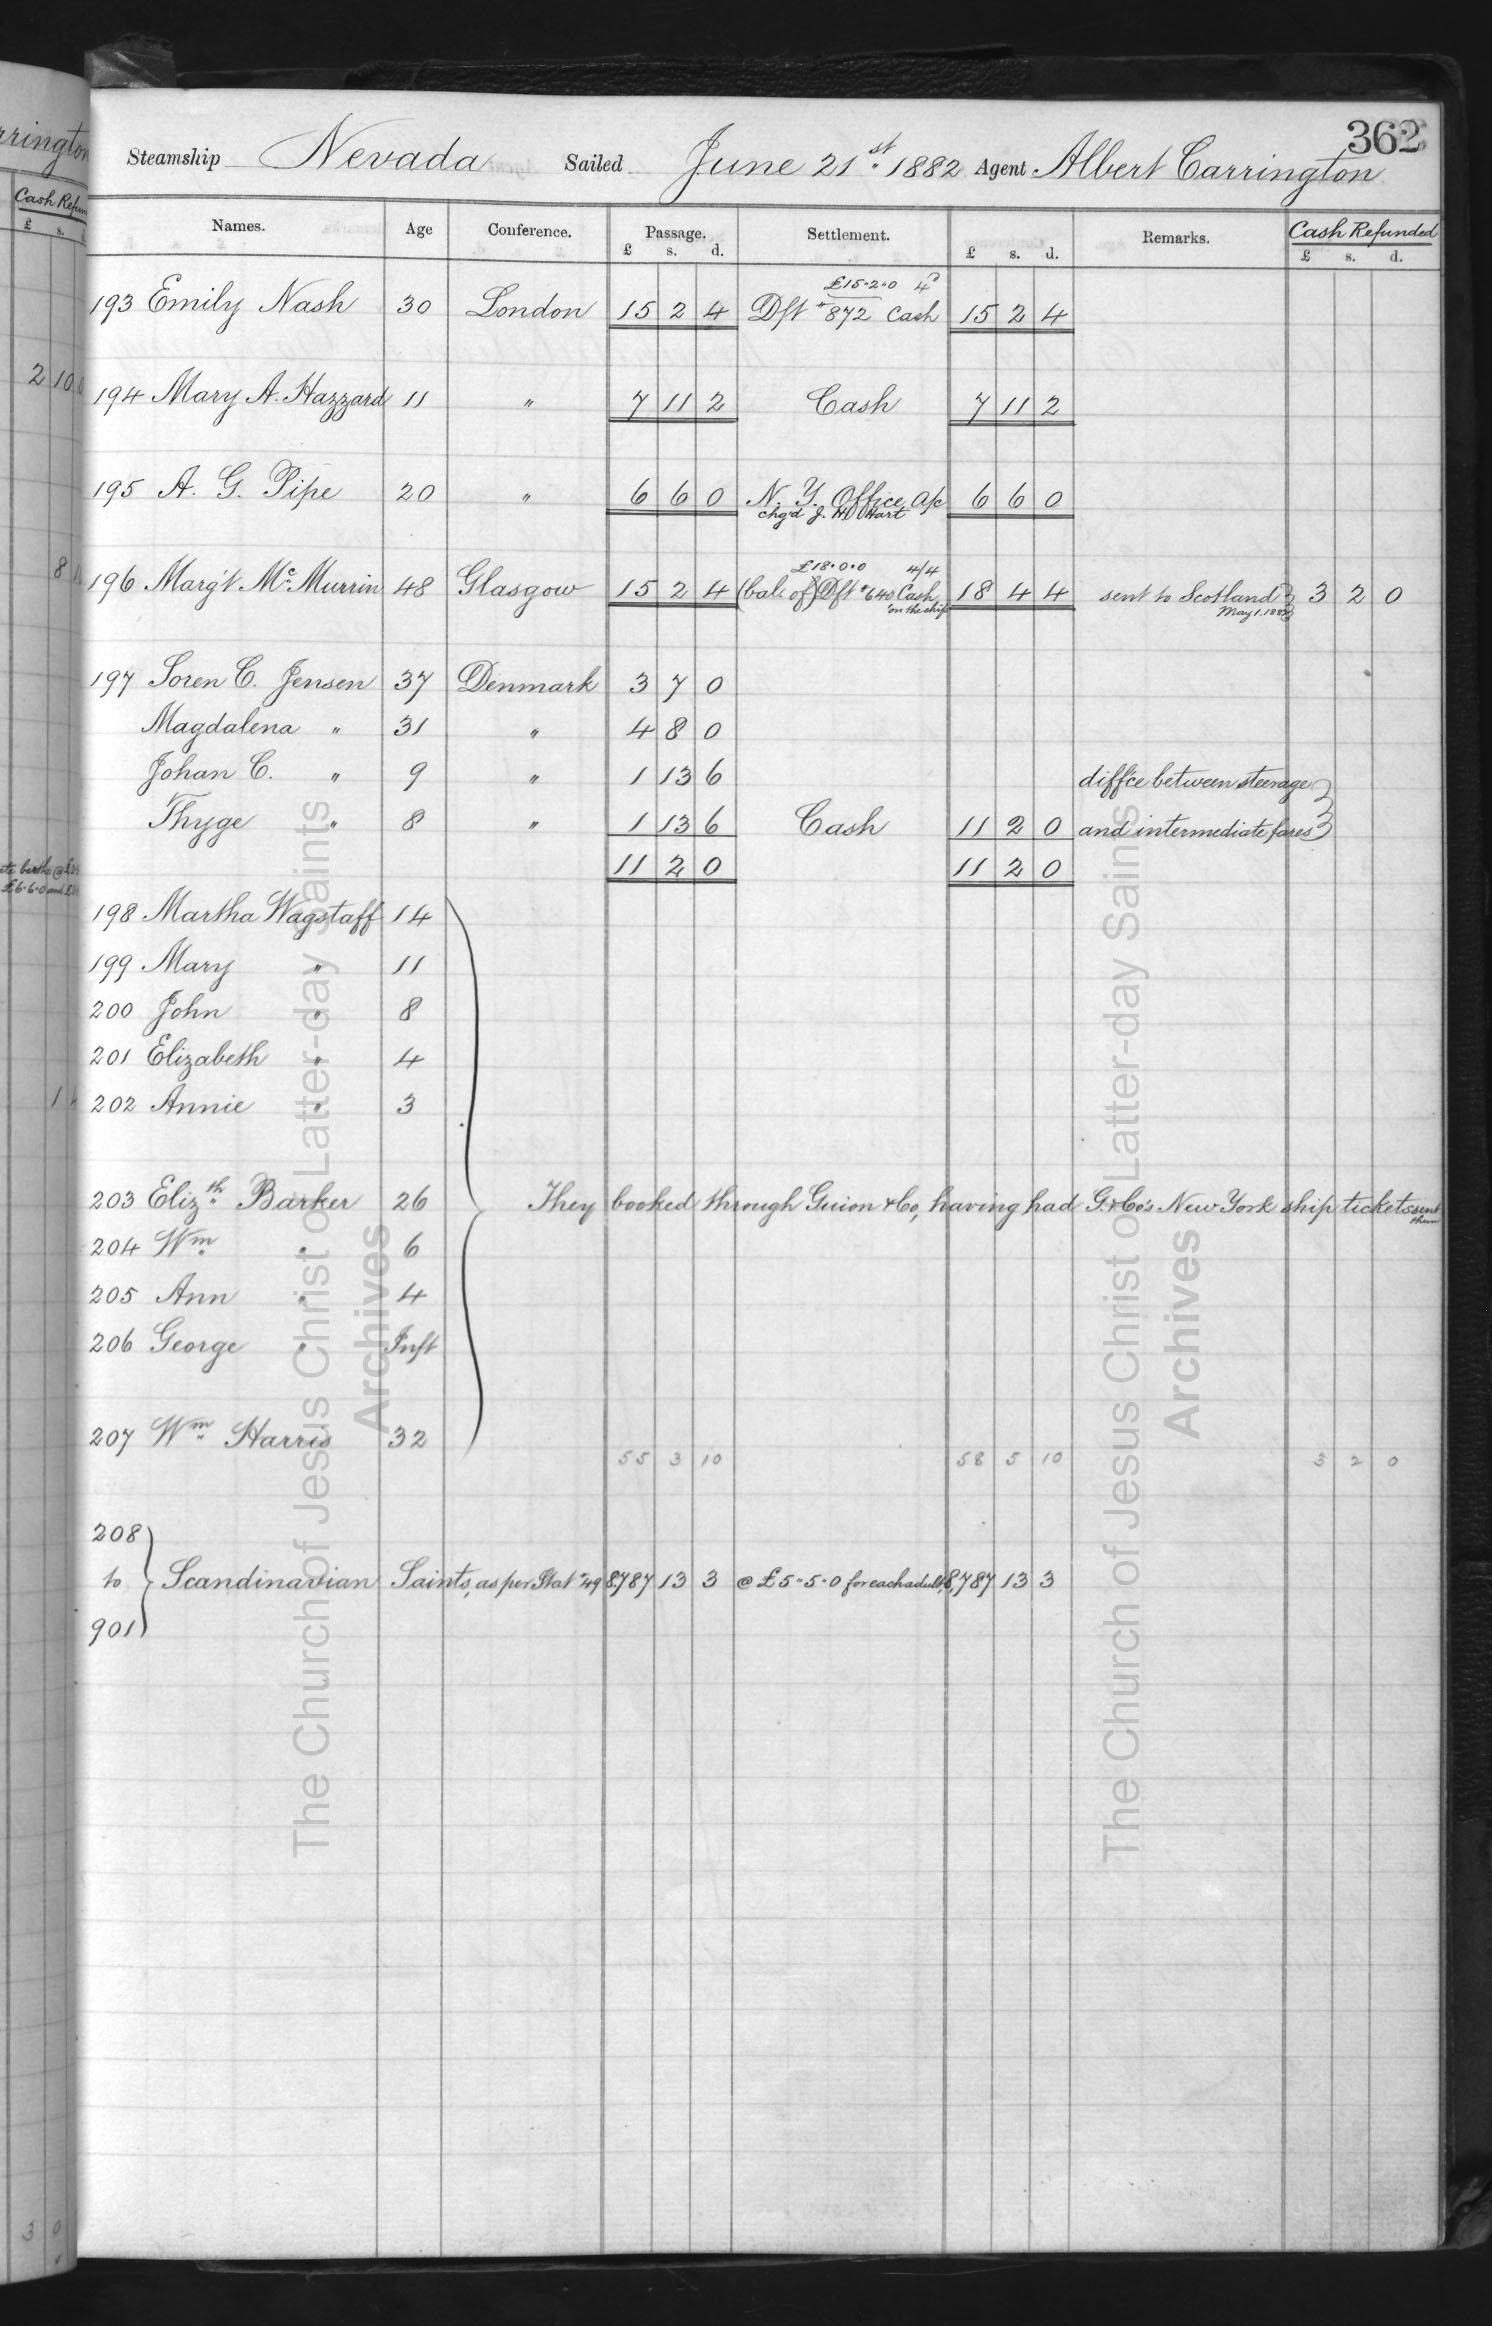 362
Steamship Nevada Sailed June 21st 1882 Agent Albert Carrington
Names. Age Conference. Passage. Settlement. Remarks. Cash Refunded
£ s. d. £ s. d. £ s. d.
£15.2.0 4d
193 Emily Nash 30 London 15 2 4 Dft #872 Cash 15 2 4
194 Mary A. Hazzard 11 " 7 11 2 Cash 7 11 2
195 A. G. Pipe 20 " 6 6 0 N. Y. Office a/c 6 6 0
chg'd J. H. Hart
£18.0.0 4/4
196 Marg't McMurrin 48 Glasgow 15 2 4 (bal. of) Dft #640 Cash 18 4 4 sent to Scotland 3 2 0
on the ship May 1. 1882
197 Soren C. Jensen 37 Denmark 3 7 0
Magdalena " 31 " 4 8 0
Johan C. " 9 " 1 13 6 diff'ce between steerage
Thyge " 8 " 1 13 6 Cash 11 2 0 and intermediate fares
11 2 0 11 2 0
198 Martha Wagstaff 14
199 Mary " 11
200 John " 8
201 Elizabeth " 4
202 Annie " 3
203 Elizth Barker 26 They booked through Guion & Co, having had G. & Co's New York ship tickets sent
them
204 Wm " 6
205 Ann " 4
206 George " Inft
207 Wm Harris 32
55 3 10 58 5 10 3 2 0
208
to Scandinavian Saints, as per Stat #49 8,787 13 3 @ £5.5.0 for each adult, 8,787 13 3
901
The Church of Jesus Christ of Latter-day Saints
Archives
The Church of Jesus Christ of Latter-day Saints
Archives
rrington
Cash Refun
£ s.
2 10 0
8
£6.6.0 and
1
3 0